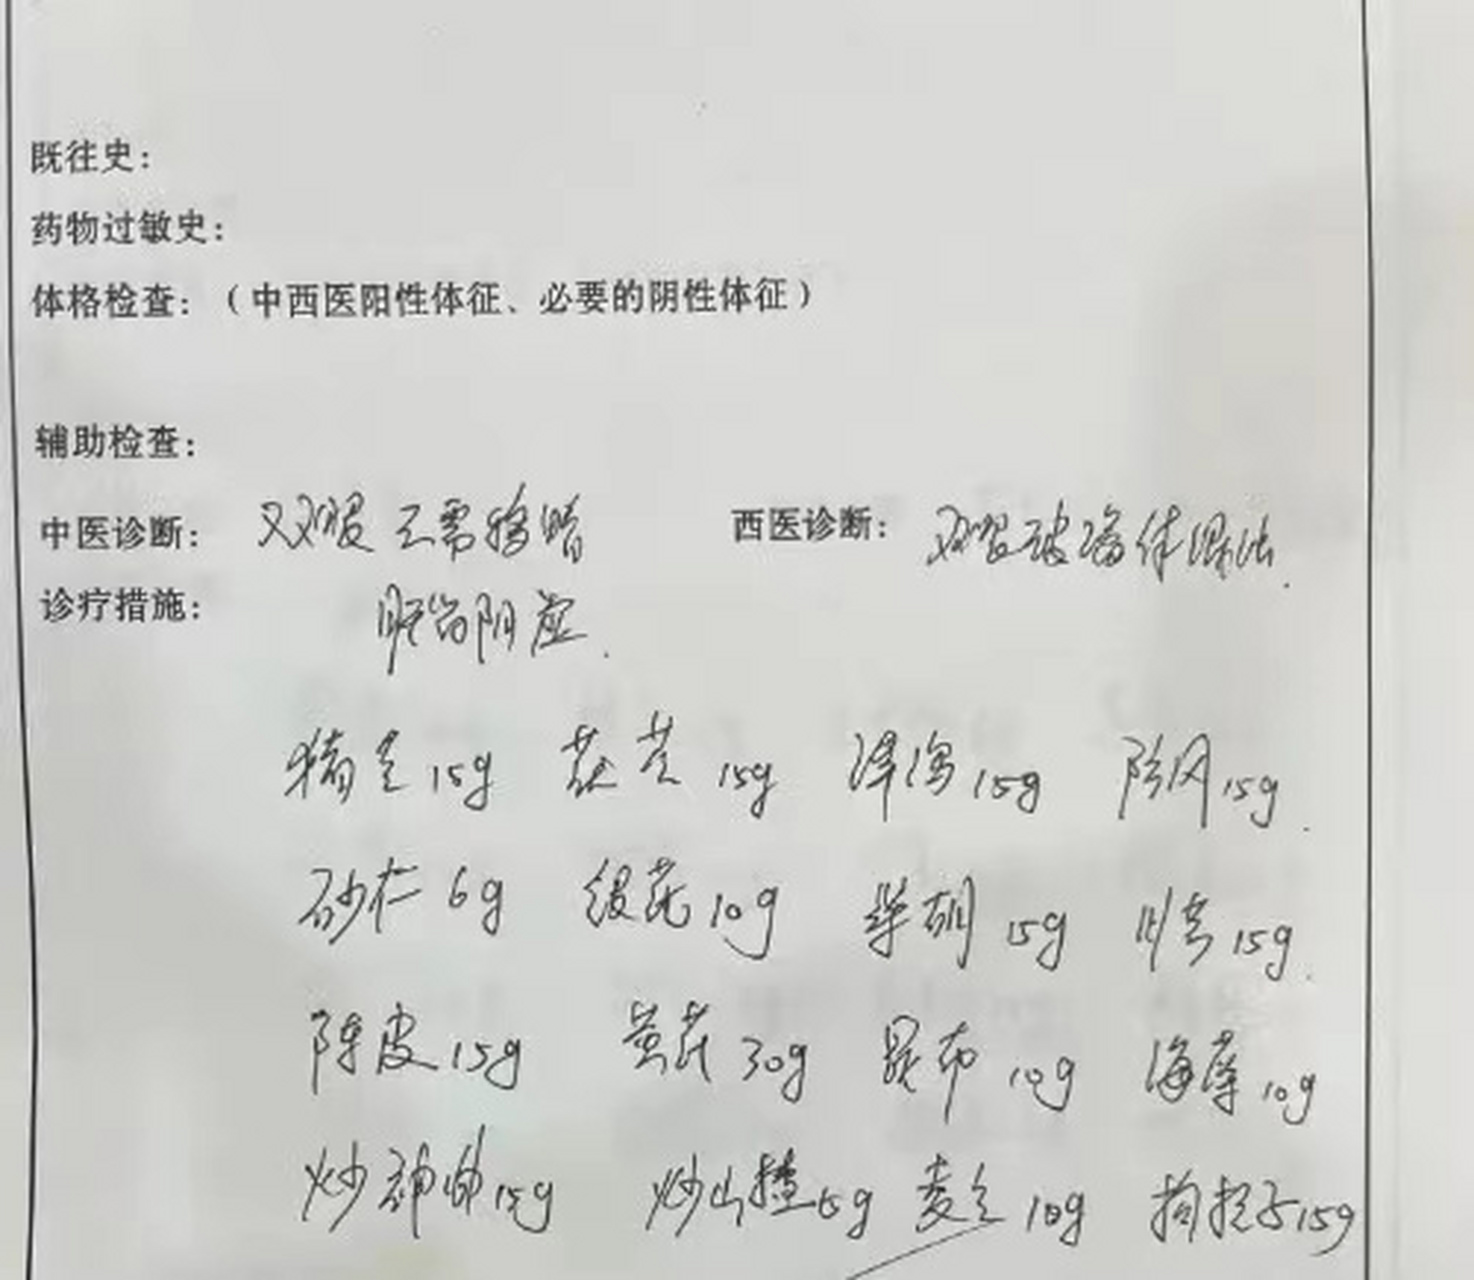 既往史：
药物过敏史：
体格检查：（中西医阳性体征、必要的阴性体征）
辅助检查：
中医诊断： 双眼云雾移睛 西医诊断： 双眼玻璃体混浊.
诊疗措施： 肝肾阴虚.
猪苓15g 茯苓15g 泽泻15g 防风15g.
砂仁6g 银花10g 柴胡15g 川芎15g.
陈皮15g 黄芪30g 昆布10g 海藻10g
炒神曲15g 炒山楂15g 麦冬10g 枸杞子15g